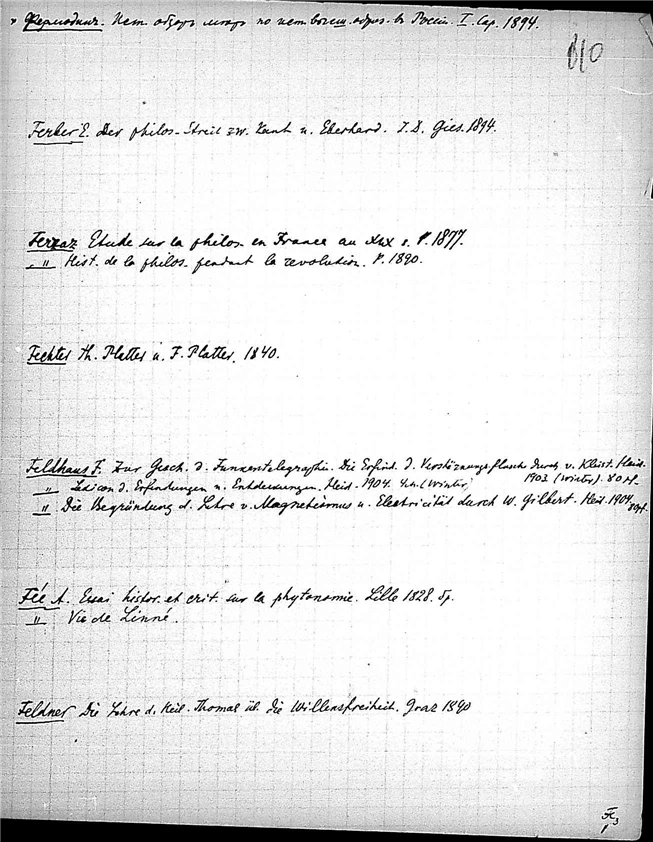 " Фермодинг. Ист. обзоръ по исто въ Россіи. I. Сар. 1894.
110
Ferber E. Der philos. Streit zw. Kant u. Eberhard. I. D. Gies. 1894.
Ferraz Etude sur la philos. en France au XIX s. P. 1877.
„ Hist. de la philos. pendant la revolution. P. 1890.
Fechter Th. Platter u. F. Platter. 1840.
Feldhaus F. Zur Gesch. d. Funkentelegraphie. Die Erfind. d. Verstärkungsflasche durch v. Kleist. Heid.
1903 (Winter). 80 pf.
„ Lexicon d. Erfindungen u. Entdeckungen. Heid. 1904. 4 м. (Winter)
„ Die Begründung d. Lehre v. Magnetismus u. Electricität durch W. Gilbert. Heid. 1904 80 pf.
Fée A. Essai histor. et crit. sur la phytonomie. Lille 1828. 5 p.
„ Vie de Linné.
Feldner Die Lehre d. heil. Thomas üb. die Willensfreiheit. Graz 1890